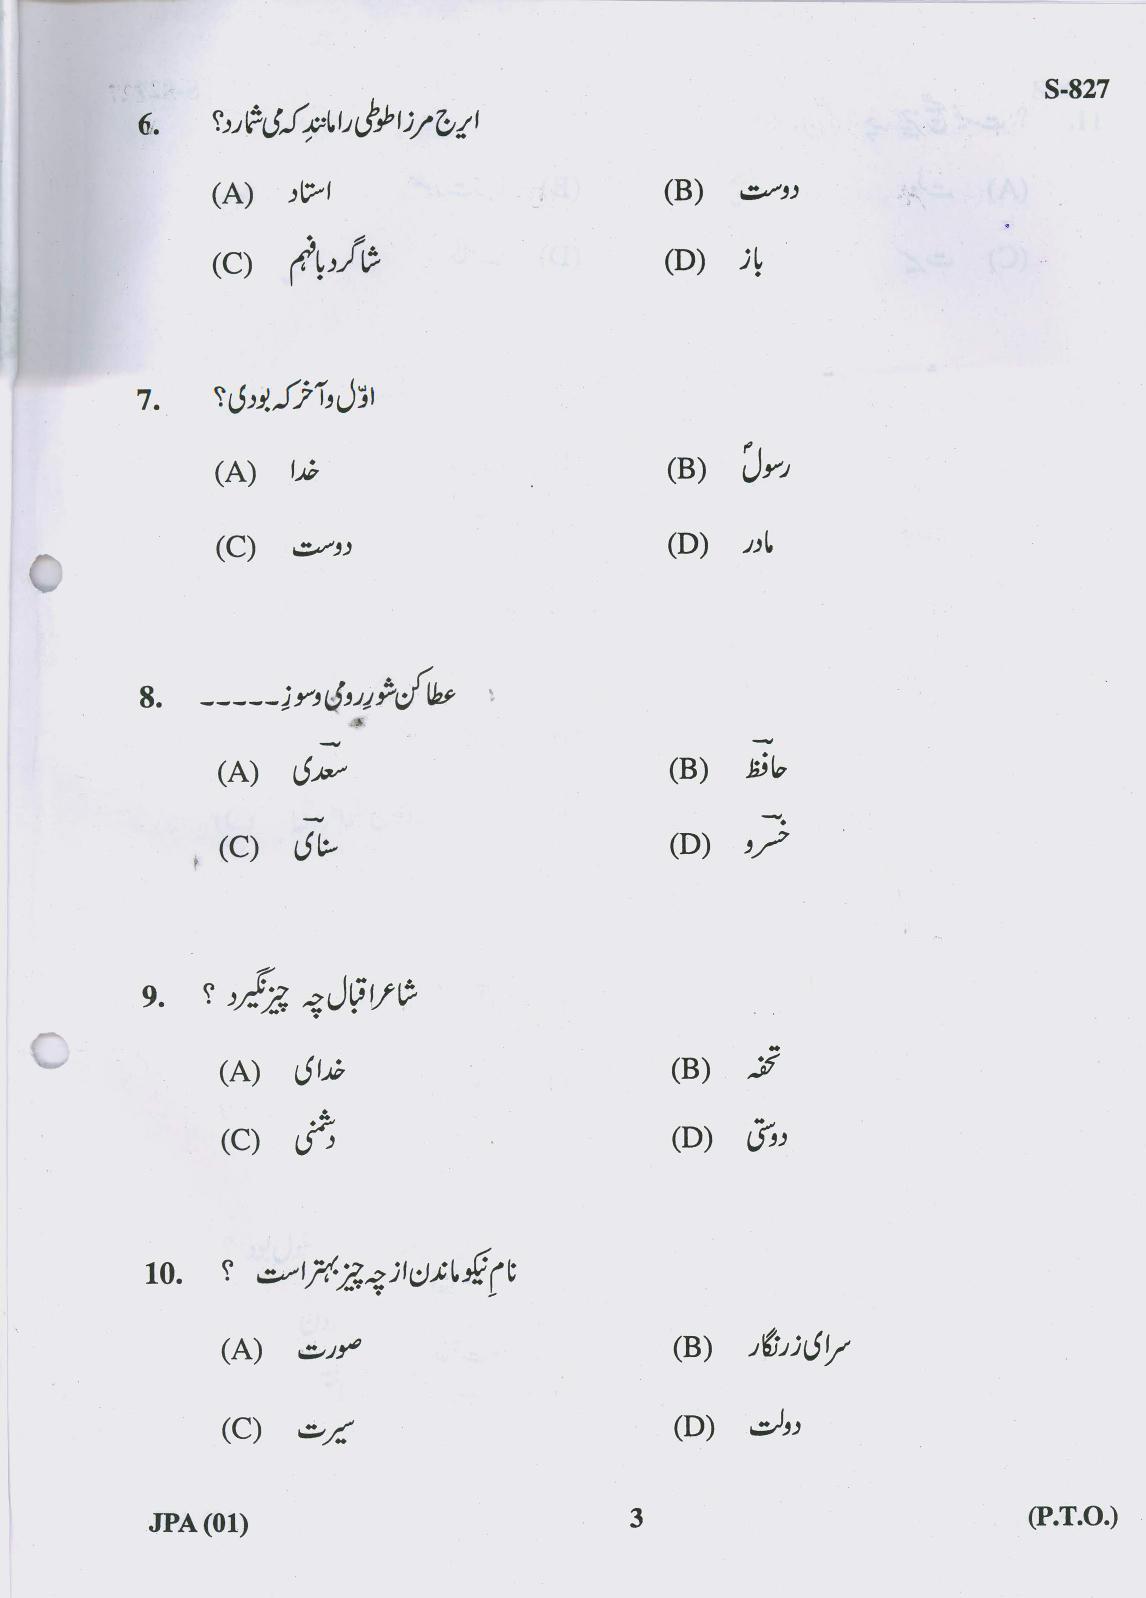 S-827
6. ایرج مرزا طوطی را مانندِ کہ می شمارد؟
(A) استاد (B) دوست
(C) شاگرد بافہم (D) باز
7. اوّل و آخر کہ بودی؟
(A) خدا (B) رسولؐ
(C) دوست (D) مادر
8. عطا کن شورِ رومی و سوزِ -----
(A) سعدیؔ (B) حافظؔ
(C) سنایؔی (D) خسروؔ
9. شاعر اقبال چہ چیز نگیرد ؟
(A) خدای (B) تحفہ
(C) دشمنی (D) دوستی
10. نامِ نیکو ماندن از چہ چیز بہتر است ؟
(A) صورت (B) سرای زرنگار
(C) سیرت (D) دولت
JPA (01) 3 (P.T.O.)